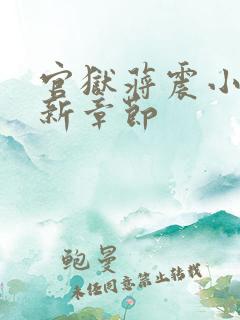 官獄蔣震小
新章節
鲍曼
未经同意禁止转载